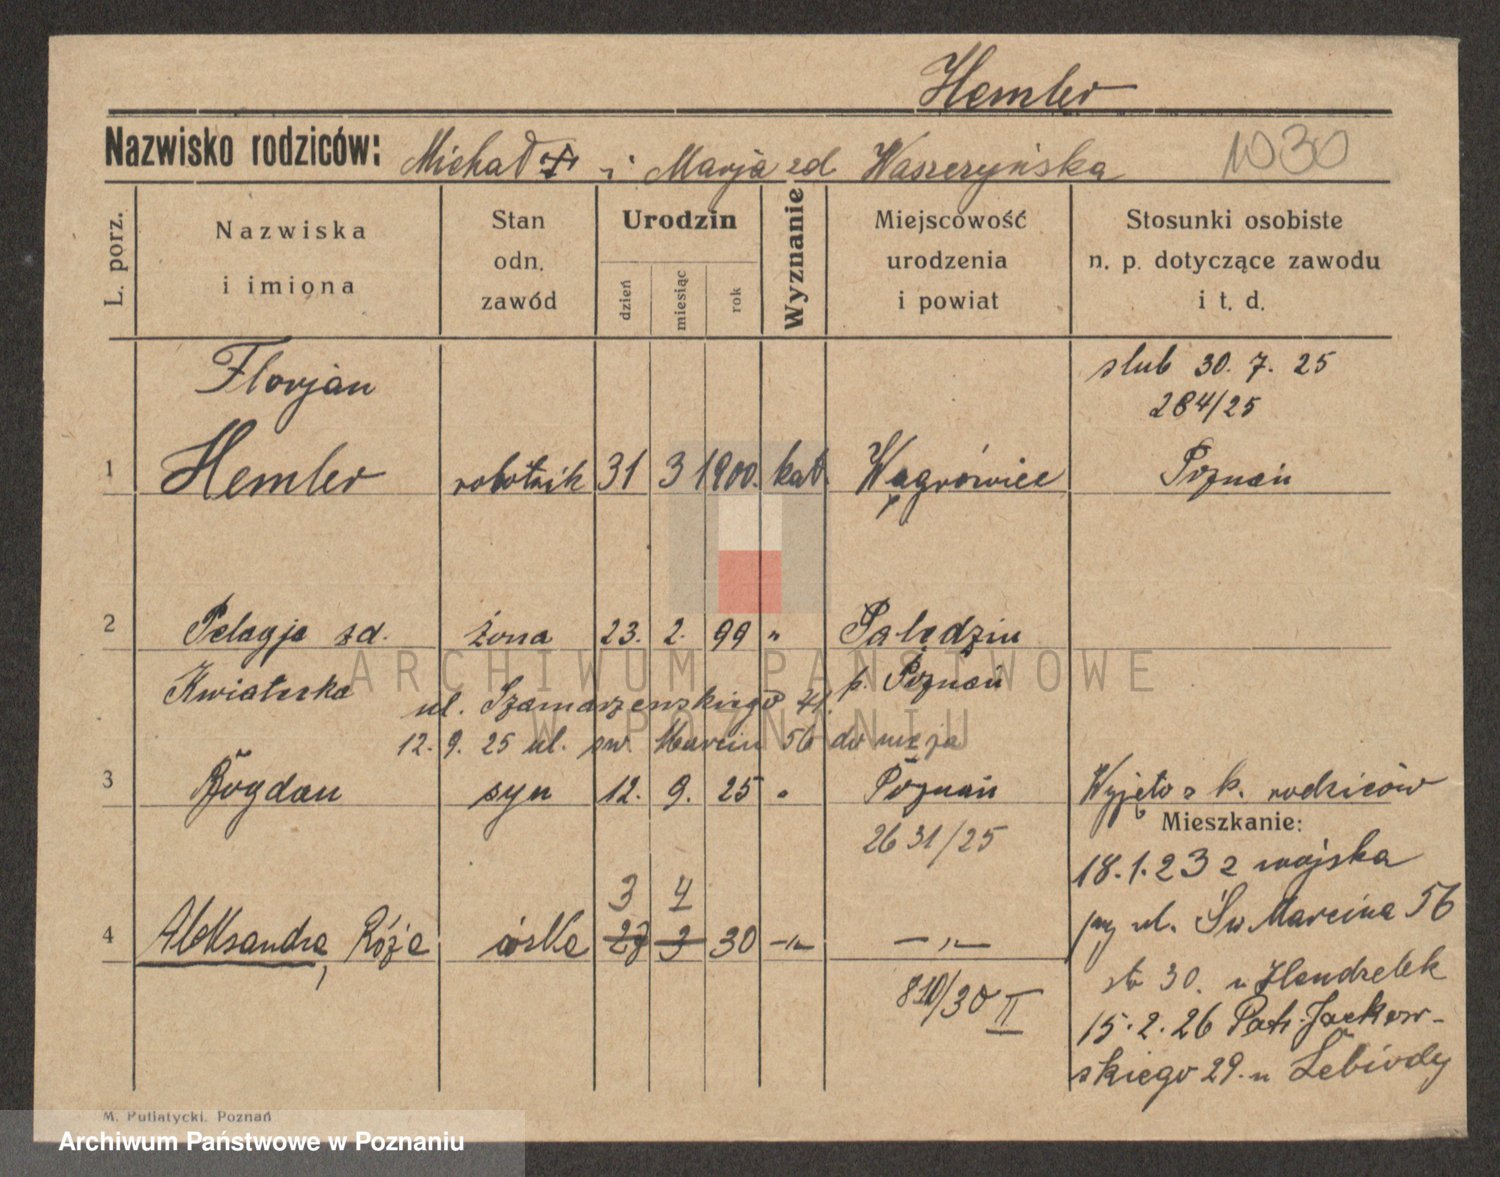 Hemler
Nazwisko rodziców: Michał + i Marja zd Waszczyńska 1030
L. porz.
Nazwiska i imiona
Stan odn. zawód
Urodzin
dzień miesiąc rok
Wyznanie
Miejscowość urodzenia i powiat
Stosunki osobiste n. p. dotyczące zawodu i t. d.
Florjan
ślub 30. 7. 25
284/25
1 Hemler robotnik 31 3 1900. kat. Wągrówiec Poznań
2 Pelagja zd. żona 23. 2. 99 " Palędzin
Kwiatuska p. Poznań
ul. Szamarzewskiego 41.
12. 9. 25 ul. św. Marcin 56 do męża
3 Bogdan syn 12. 9. 25 " Poznań Wyjęto z k. rodziców
2631/25
Mieszkanie:
18.1.23 z wojska
3 4
przy ul. Św Marcina 56
4 Aleksandra, Róża córka 27 3 30 -"- -"-
810/30 II
str 30. u Hendrelek
15.2.26 Patr. Jackow-
skiego 29. u Lebiody
M. Putiatycki, Poznań
ARCHIWUM PAŃSTWOWE
W POZNANIU
Archiwum Państwowe w Poznaniu